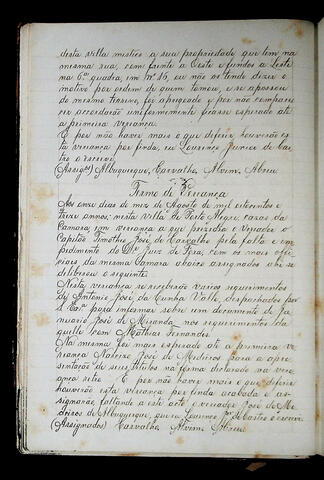 desta villa mistico a sua propriedade que tem na
mesma rua, com frente a Oeste e fundos a Leste
na 6ª quadra, em nº 16, ou não os tendo dizer o
motivo por ordem de quem tomou, e se apossou
do mesmo terreno, foi apregoado e por não compare
cer acordarão uniformemente ficasse esperado até
a primeira vereança.
E por não haver mais o que deferir, houverão es
ta vereança por finda, eu Lourenço Junior de Cas
tro o escrevi.
(Assigdos) Albuquerque, Carvalho, Alvim, Abreu
Termo de Vereança
Aos onze dias do mez de Agosto de mil oitocentos e
treze annos, nesta villa de Porto Alegre, cazas da
Camara em vereança a que prezidio o Vereador o
Capitão Timotheo José de Carvalho pela falta e im
pedimento do Dr. Juiz de Fora, com os mais offi
ciais da mesma Camara abaixo assignados ahi se
deliberou o seguinte.
Nesta vereança se receberão varios requerimentos
de Antonio José da Cunha Valle, despachados por
para informar sobre um documento de Ja
nuario José de Miranda, nos requerimentos da
quelle com Mathias Fernandes.
Na mesma foi mais esperado até a primeira ve
reança José de Medeiros para a apre
sentação de seus titulos na forma declarado na vere
ança retro. E por não haver mais o que deferir
houverão esta vereança por finda acabada e as
signarão, faltando a este acto o vereador José de Me
deiros de Albuquerque, que eu Lourenço Jor de Castro o escrevi
(Assignados) Carvalho Alvim Abreu